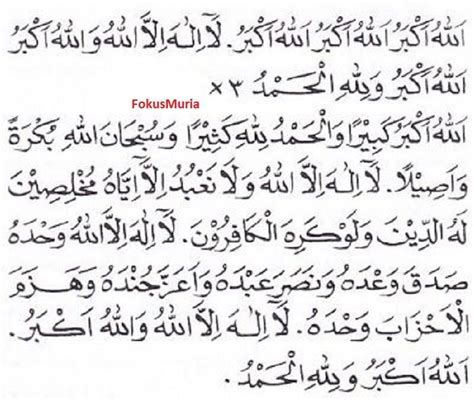 اَللهُ اَكْبَرُ اَللهُ اَكْبَرُ اَللهُ اَكْبَرُ. لَآ اِلٰهَ اِلَّا اللهُ وَاللهُ اَكْبَرُ
اَللهُ اَكْبَرُ وَلِلّٰهِ الْحَمْدُ ×٣
FokusMuria
اَللهُ اَكْبَرُ كَبِيْرًا وَالْحَمْدُ لِلّٰهِ كَثِيْرًا وَسُبْحَانَ اللهِ بُكْرَةً
وَاَصِيْلًا. لَآ اِلٰهَ اِلَّا اللهُ وَلَا نَعْبُدُ اِلَّآ اِيَّاهُ مُخْلِصِيْنَ
لَهُ الدِّيْنَ وَلَوْكَرِهَ الْكَافِرُوْنَ. لَآ اِلٰهَ اِلَّا اللهُ وَحْدَهُ
صَدَقَ وَعْدَهُ وَنَصَرَ عَبْدَهُ وَاَعَزَّ جُنْدَهُ وَهَزَمَ
الْاَحْزَابَ وَحْدَهُ. لَآ اِلٰهَ اِلَّا اللهُ وَاللهُ اَكْبَرُ.
اَللهُ اَكْبَرُ وَلِلّٰهِ الْحَمْدُ.